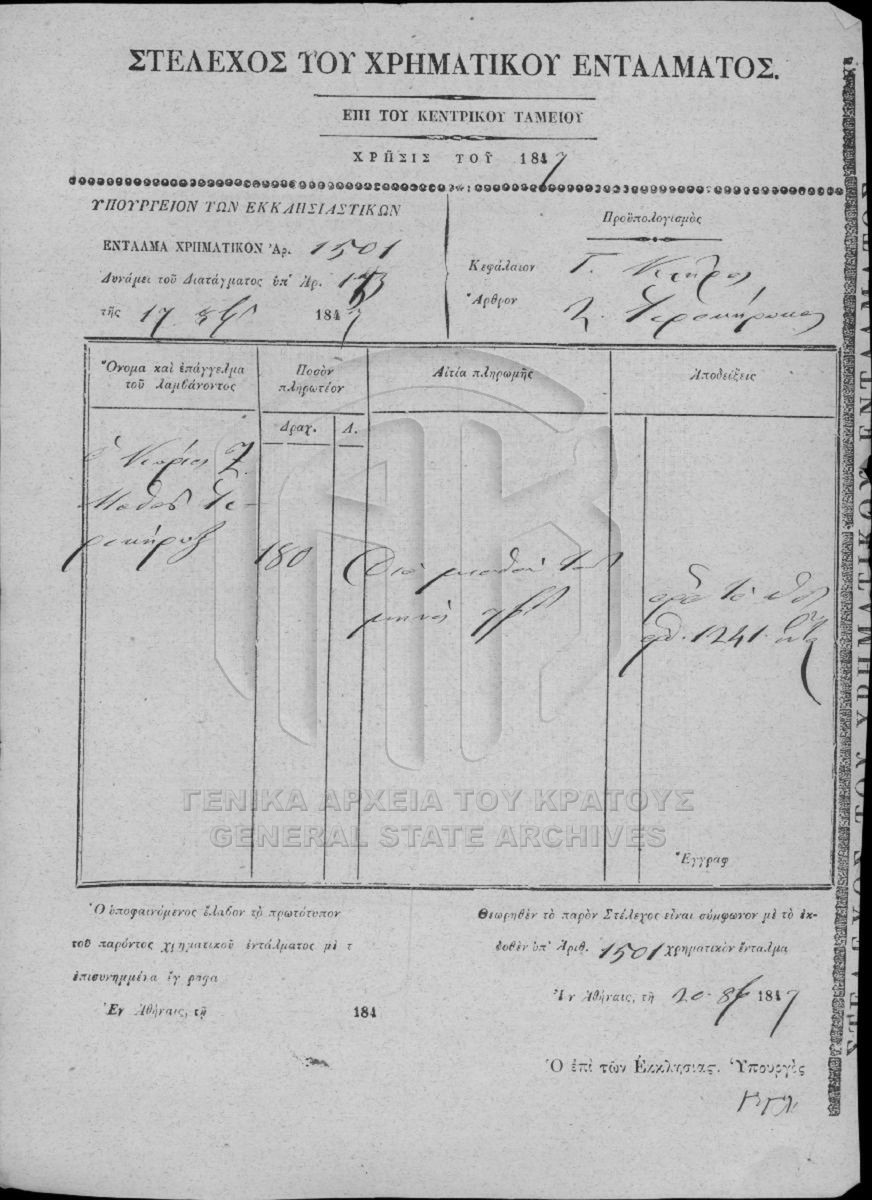 ΣΤΕΛΕΧΟΣ ΤΟΥ ΧΡΗΜΑΤΙΚΟΥ ΕΝΤΑΛΜΑΤΟΣ.
ΕΠΙ ΤΟΥ ΚΕΝΤΡΙΚΟΥ ΤΑΜΕΙΟΥ
ΧΡΗΣΙΣ ΤΟΥ 1847
ΥΠΟΥΡΓΕΙΟΝ ΤΩΝ ΕΚΚΛΗΣΙΑΣΤΙΚΩΝ
ΕΝΤΑΛΜΑ ΧΡΗΜΑΤΙΚΟΝ Ἀρ. 1501
Δυνάμει τοῦ Διατάγματος ὑπ' Ἀρ.
τῆς 17 1847
Προϋπολογισμὸς
Κεφάλαιον Γ.
Ἄρθρον
Ὄνομα καὶ ἐπάγγελμα
τοῦ λαμβάνοντος
Ποσὸν
πληρωτέον
Δραχ. Λ.
Αἰτία πληρωμῆς
Ἀποδείξεις
ὁ Κύριος
Ἱε-
ροκήρυξ
180
Διὰ μισθὸν τοῦ
μηνὸς
1241
Ἔγγραφ
ΓΕΝΙΚΑ ΑΡΧΕΙΑ ΤΟΥ ΚΡΑΤΟΥΣ
GENERAL STATE ARCHIVES
Ὁ ὑποφαινόμενος ἔλαβον τὸ πρωτότυπον
τοῦ παρόντος χρηματικοῦ ἐντάλματος μὲ τ
ἐπισυνημμένα ἔγγραφα
Ἐν Ἀθήναις, τῇ 184
Θεωρηθὲν τὸ παρὸν Στέλεχος εἶναι σύμφωνον μὲ τὸ ἐκ-
δοθὲν ὑπ' Ἀριθ. 1501 χρηματικὸν ἔνταλμα
Ἐν Ἀθήναις, τῇ 20 1847
Ὁ ἐπὶ τῶν Ἐκκλησιας. Ὑπουργὸς
ΣΤΕΛΕΧΟΣ ΤΟΥ ΧΡΗΜΑΤΙΚΟΥ ΕΝΤΑΛΜΑΤΟΣ